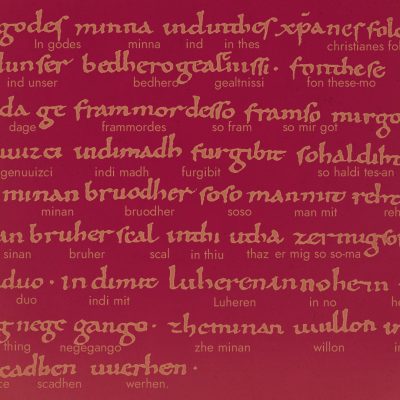 godes minna induinthes xp̄anes folc
In godes minna ind in thes christianes fol
dunser bedherogealtnissi · fonthese
ind unser bedhero gealtnissi fon these-mo
da ge frammordesso framso mirgo
dage frammordes so fram so mir got
uuizci indimadh furgibit sohaldih
genuuizci indi madh furgibit so haldi tes-an
minan bruodher soso manmit reht
minan bruodher soso man mit reh
an bruher scal inthi utha zermigso
sinan bruher scal in thiu thaz er mig so so-ma
duo · indimit luheren in nohein
duo indi mit Luheren in no he
g nege gango · zheminan uuillon in
thing negegango zhe minan willon in
ce scadhen uuerhen ·
ce scadhen werhen.